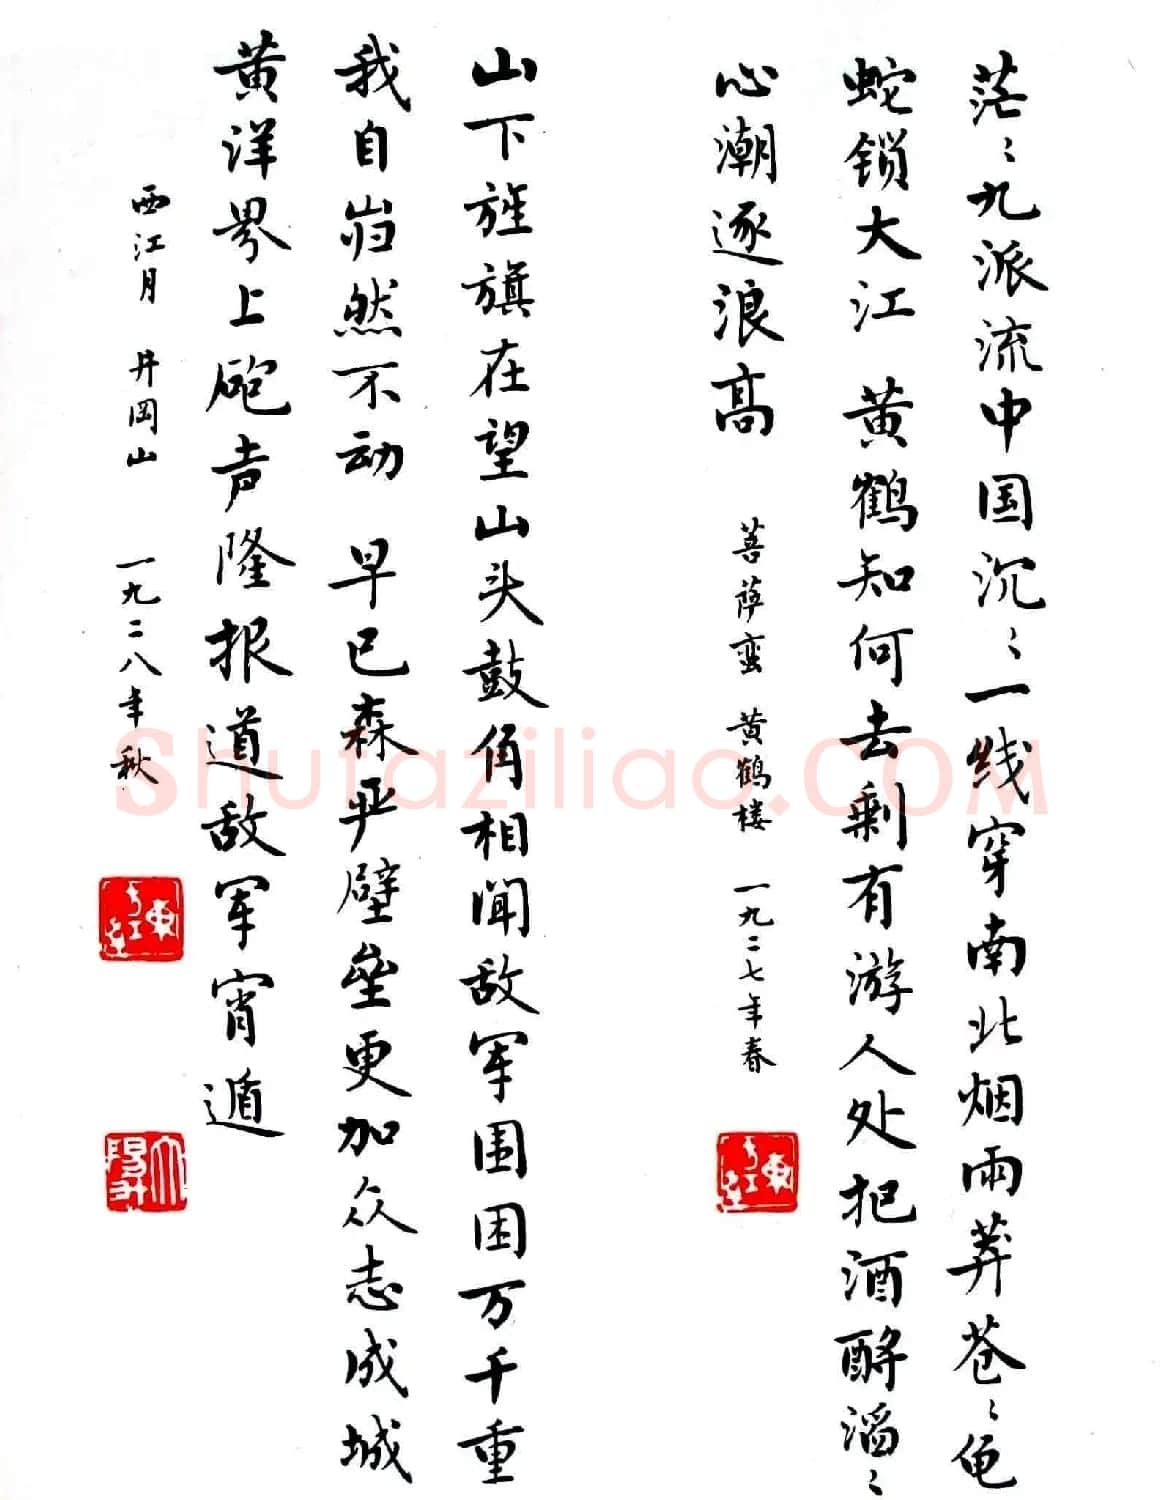 茫〻九派流中国沉〻一线穿南北烟雨莽苍〻龟
蛇锁大江 黄鹤知何去剩有游人处把酒酹滔〻
心潮逐浪高 菩萨蛮 黄鹤楼 一九二七年春
山下旌旗在望山头鼓角相闻敌军围困万千重
我自岿然不动 早已森严壁垒更加众志成城
黄洋界上砲声隆报道敌军宵遁
西江月 井冈山 一九二八年秋
Shufaziliao.COM